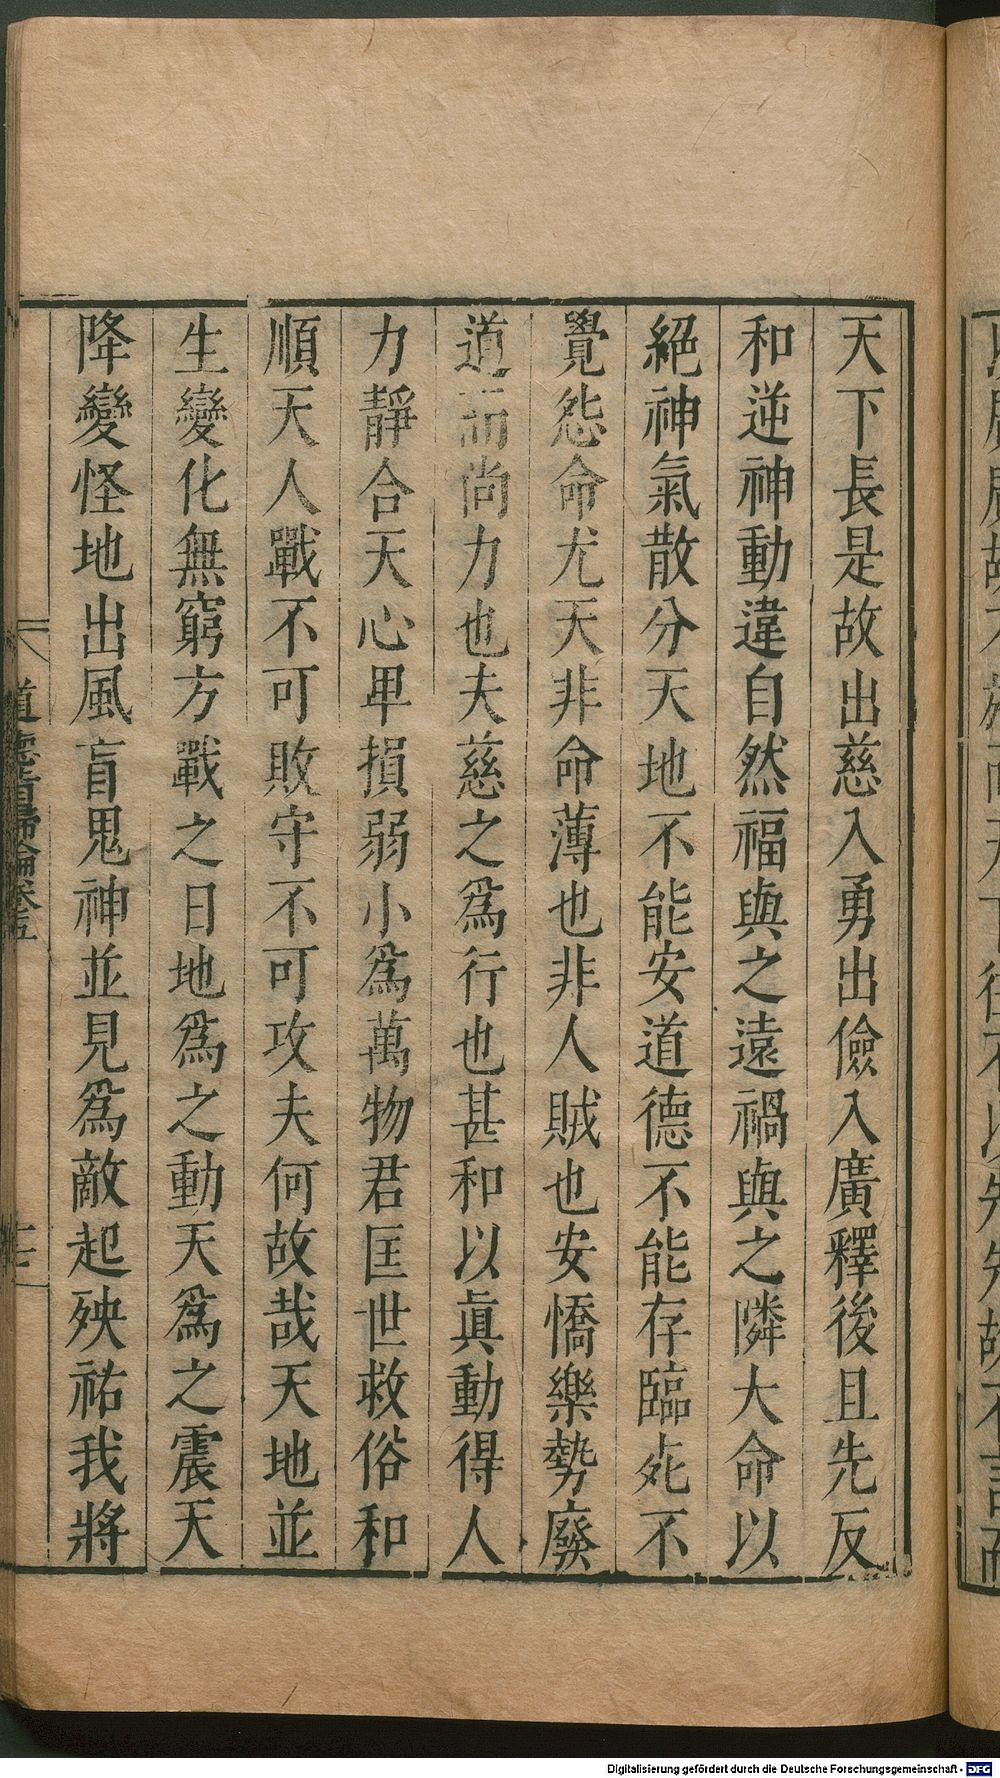 天下長是故出慈入勇出儉入廣釋後且先反
和逆神動違自然福與之遠禍與之隣大命以
絕神氣散分天地不能安道德不能存臨死不
覺怨命尤天非命薄也非人賊也安憍樂勢廢
道而尚力也夫慈之爲行也甚和以眞動得人
力靜合天心卑損弱小爲萬物君匡世救俗和
順天人戰不可敗守不可攻夫何故哉天地並
生變化無窮方戰之日地爲之動天爲之震天
降變怪地出風盲鬼神並見爲敵起殃祐我將
道德指歸論卷五
Digitalisierung gefördert durch die Deutsche Forschungsgemeinschaft - DFG